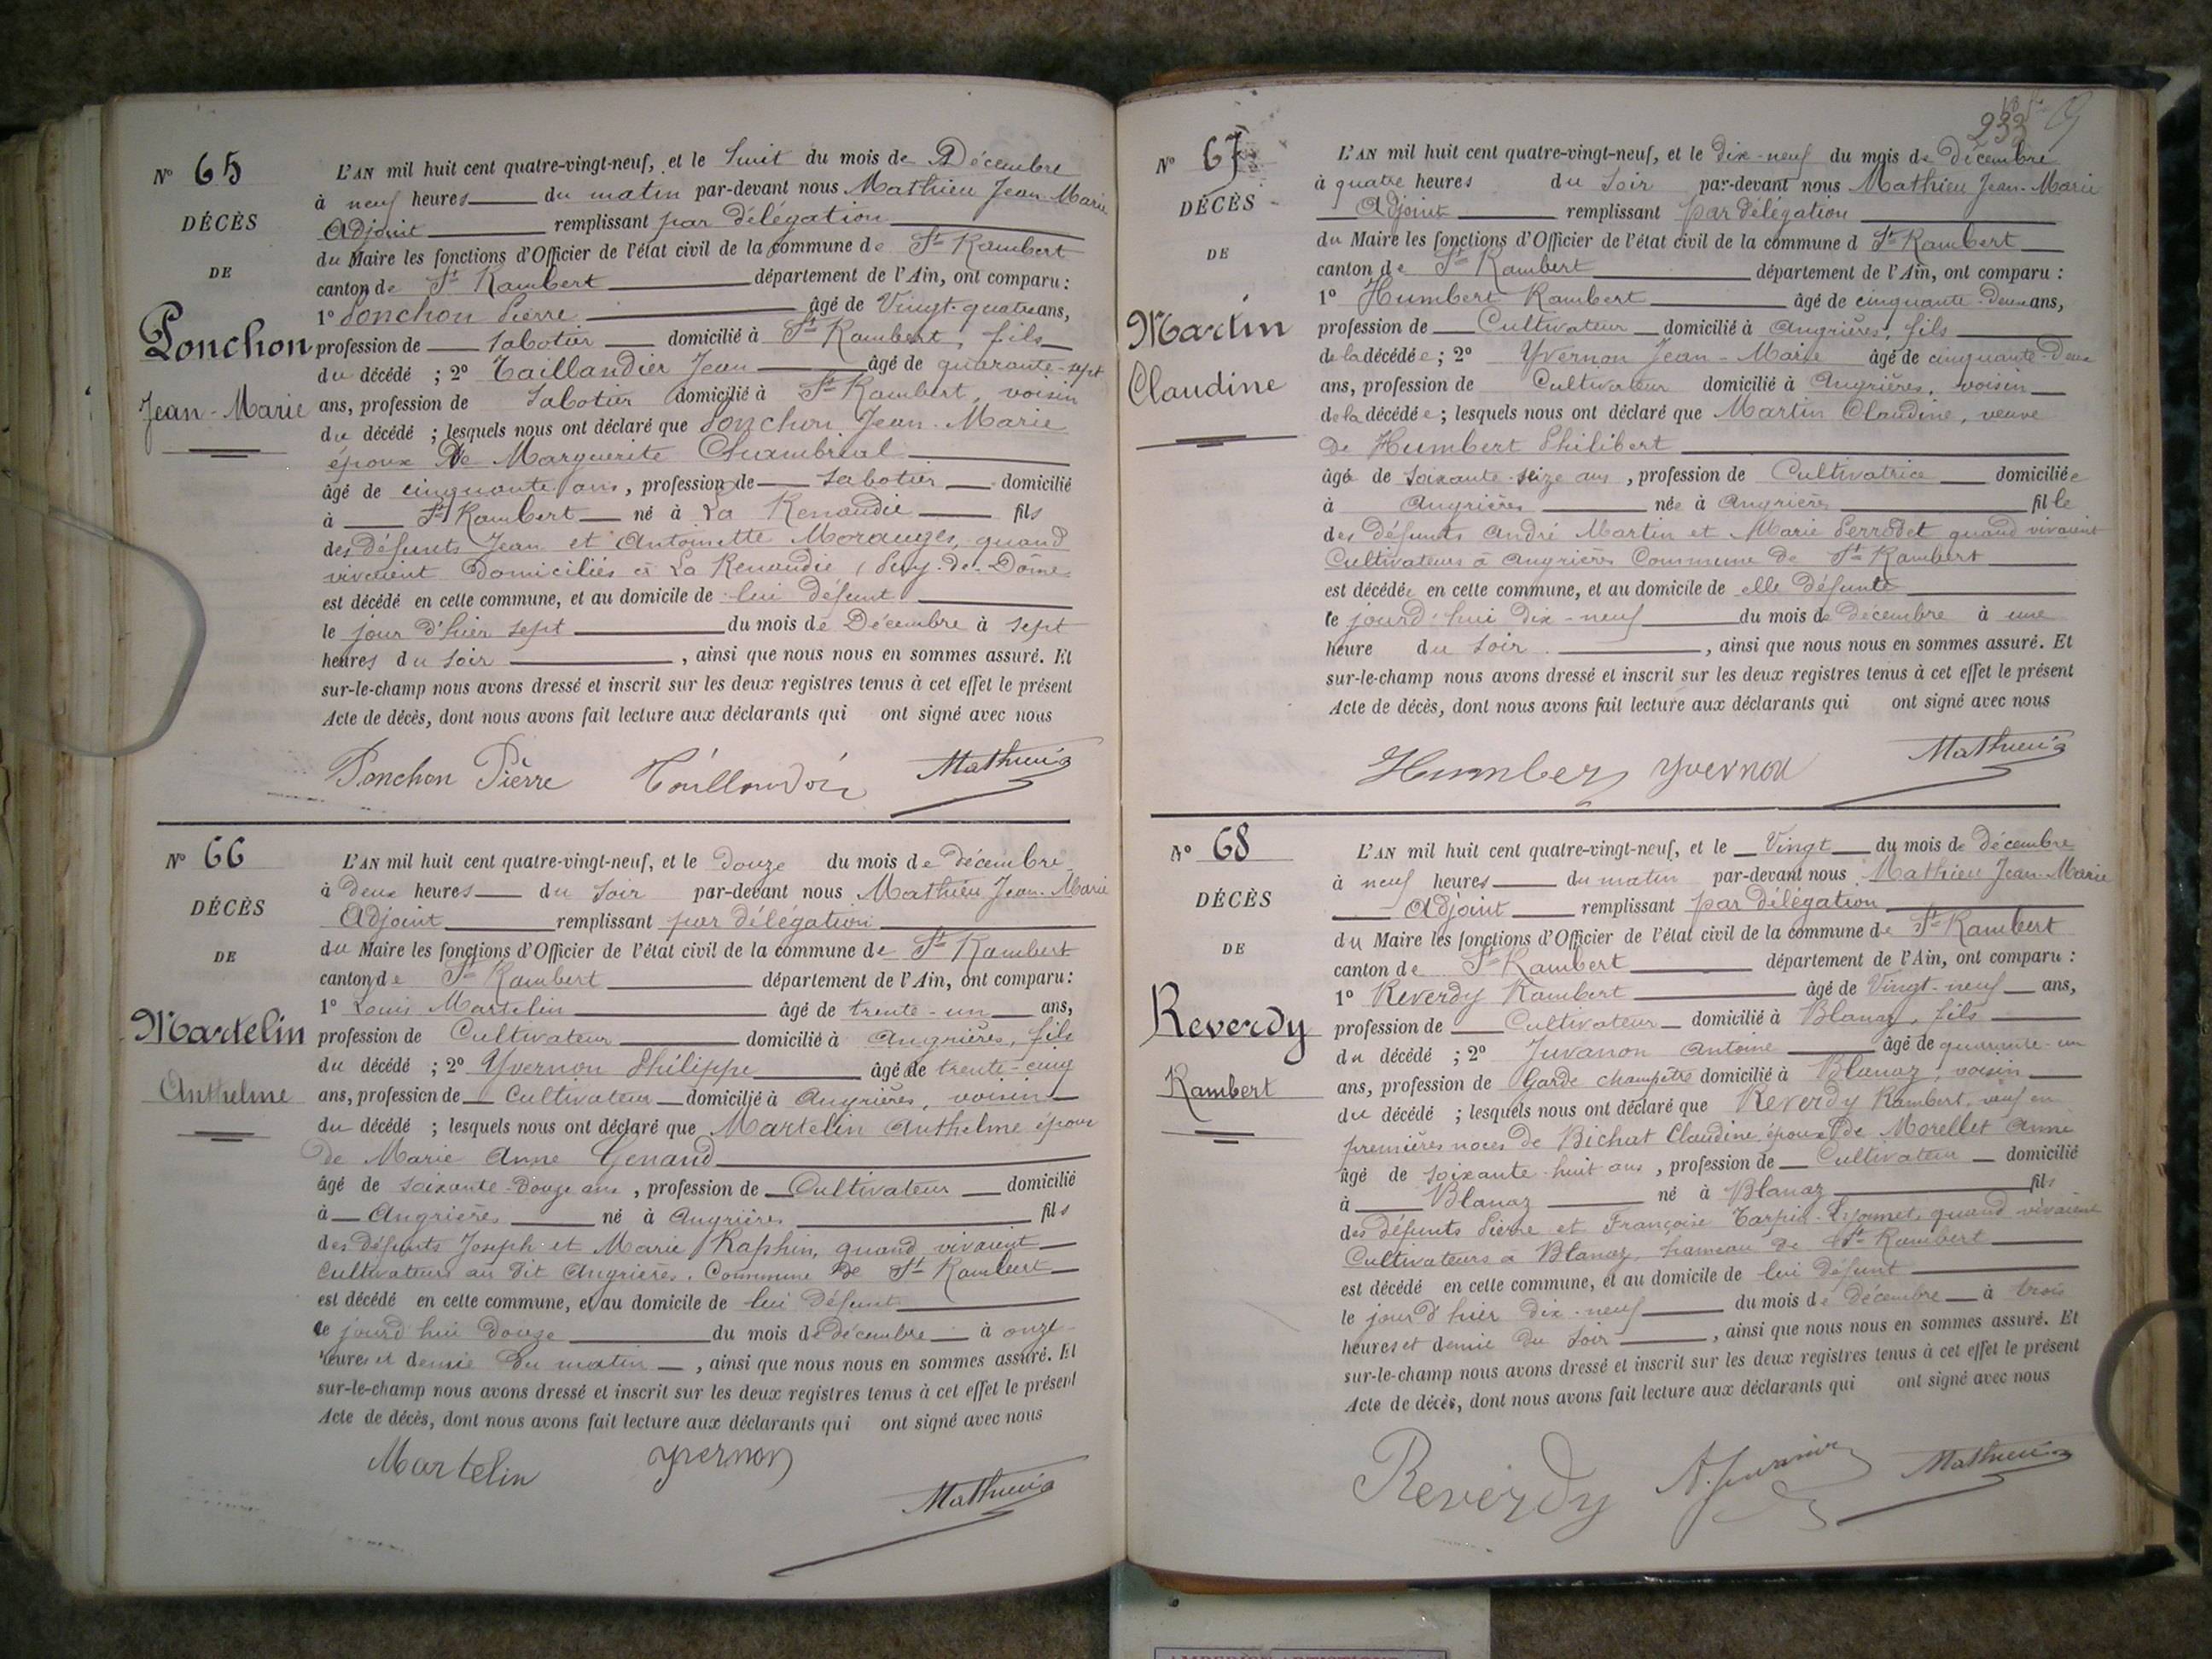 N° 65
DÉCÈS
DE
Ponchon
Jean-Marie
L'AN mil huit cent quatre-vingt-neuf, et le huit du mois de Décembre
à neuf heures du matin par-devant nous Mathieu Jean-Marie
Adjoint remplissant par délégation
du Maire les fonctions d'Officier de l'état civil de la commune de St Rambert
canton de St Rambert département de l'Ain, ont comparu :
1° Ponchon Pierre âgé de Vingt-quatre ans,
profession de Sabotier domicilié à St Rambert, fils
du décédé ; 2° Taillandier Jean âgé de quarante-sept
ans, profession de Sabotier domicilié à St Rambert, voisin
du décédé ; lesquels nous ont déclaré que Ponchon Jean-Marie
époux de Marguerite Chambrial
âgé de cinquante ans, profession de Sabotier domicilié
à St Rambert né à La Renaudie fils
des défunts Jean et Antoinette Moranges, quand
vivaient domiciliés à La Renaudie (Puy-de-Dôme
est décédé en cette commune, et au domicile de lui défunt
le jour d'hier sept du mois de Décembre à sept
heures du soir , ainsi que nous nous en sommes assuré. Et
sur-le-champ nous avons dressé et inscrit sur les deux registres tenus à cet effet le présent
Acte de décès, dont nous avons fait lecture aux déclarants qui ont signé avec nous
Ponchon Pierre Mathieu
N° 66
DÉCÈS
DE
Martelin
Anthelme
L'AN mil huit cent quatre-vingt-neuf, et le douze du mois de décembre
à deux heures du soir par-devant nous Mathieu Jean-Marie
Adjoint remplissant par délégation
du Maire les fonctions d'Officier de l'état civil de la commune de St Rambert
canton de St Rambert département de l'Ain, ont comparu :
1° Louis Martelin âgé de trente-un ans,
profession de Cultivateur domicilié à Angrières, fils
du décédé ; 2° Yvernon Philippe âgé de trente-cinq
ans, profession de Cultivateur domicilié à Angrières, voisin
du décédé ; lesquels nous ont déclaré que Martelin Anthelme époux
de Marie Anne Genand
âgé de soixante-douze ans, profession de Cultivateur domicilié
à Angrières né à Angrières fils
des défunts Joseph et Marie Raphin, quand vivaient
Cultivateurs au dit Angrières, Commune de St Rambert
est décédé en cette commune, et au domicile de lui défunt
le jourd'hui douze du mois de décembre à onze
heures et demie du matin , ainsi que nous nous en sommes assuré. Et
sur-le-champ nous avons dressé et inscrit sur les deux registres tenus à cet effet le présent
Acte de décès, dont nous avons fait lecture aux déclarants qui ont signé avec nous
Martelin yvernon
Mathieu
233
N° 67
DÉCÈS
DE
Martin
Claudine
L'AN mil huit cent quatre-vingt-neuf, et le dix-neuf du mois de décembre
à quatre heures du soir par-devant nous Mathieu Jean-Marie
Adjoint remplissant par délégation
du Maire les fonctions d'Officier de l'état civil de la commune d St Rambert
canton de St Rambert département de l'Ain, ont comparu :
1° Humbert Rambert âgé de cinquante-deux ans,
profession de Cultivateur domicilié à Angrières, fils
de la décédée ; 2° Yvernon Jean-Marie âgé de cinquante-deux
ans, profession de Cultivateur domicilié à Angrières, voisin
de la décédée ; lesquels nous ont déclaré que Martin Claudine, veuve
de Humbert Philibert
âgée de soixante-seize ans, profession de Cultivatrice domiciliée
à Angrières née à Angrières fille
des défunts André Martin et Marie Perrodet quand vivaient
Cultivateurs à Angrières Commune de St Rambert
est décédée en cette commune, et au domicile de elle défunte
le jourd'hui dix-neuf du mois de décembre à une
heure du soir , ainsi que nous nous en sommes assuré. Et
sur-le-champ nous avons dressé et inscrit sur les deux registres tenus à cet effet le présent
Acte de décès, dont nous avons fait lecture aux déclarants qui ont signé avec nous
Humbert yvernon Mathieu
N° 68
DÉCÈS
DE
Reverdy
Rambert
L'AN mil huit cent quatre-vingt-neuf, et le Vingt du mois de décembre
à neuf heures du matin par-devant nous Mathieu Jean-Marie
Adjoint remplissant par délégation
du Maire les fonctions d'Officier de l'état civil de la commune de St Rambert
canton de St Rambert département de l'Ain, ont comparu :
1° Reverdy Rambert âgé de Vingt-neuf ans,
profession de Cultivateur domicilié à Blanaz, fils
du décédé ; 2° Juvanon Antoine âgé de quarante-un
ans, profession de Garde champêtre domicilié à Blanaz, voisin
du décédé ; lesquels nous ont déclaré que Reverdy Rambert, veuf en
premières noces de Bichat Claudine époux de Morellet Anne
âgé de soixante-huit ans, profession de Cultivateur domicilié
à Blanaz né à Blanaz fils
des défunts Pierre et Françoise quand vivaient
Cultivateurs à Blanaz, hameau de St Rambert
est décédé en cette commune, et au domicile de lui défunt
le jour d'hier dix-neuf du mois de décembre à trois
heures et demie du soir , ainsi que nous nous en sommes assuré. Et
sur-le-champ nous avons dressé et inscrit sur les deux registres tenus à cet effet le présent
Acte de décès, dont nous avons fait lecture aux déclarants qui ont signé avec nous
Reverdy A. Juvanon Mathieu